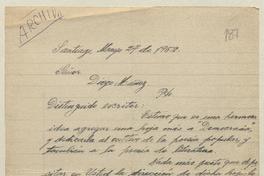 ARCHIVO
Santiago, Mayo 27 de 1952.
Señor
Diego Muñoz
Distinguido escritor:
Estimo que es una hermosa
idea agregar una hoja más a "Democracia",
y dedicarla al cultivo de la poesía popular, y
también a la poesía de literatura.
Nada más justo que
en Usted la dirección de dicha hoja